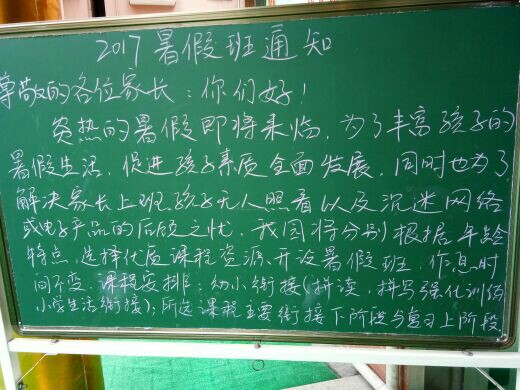 2017暑假班通知
尊敬的各位家长：你们好！
炎热的暑假即将来临，为了丰富孩子的
暑假生活，促进孩子素质全面发展，同时也为了
解决家长上班孩子无人照看以及沉迷网络
或电子产品的后顾之忧，我园将分别根据年龄
特点，选择优质课程资源，开设暑假班，作息时
间不变，课程安排：幼小衔接（拼读，拼写强化训练
小学生活衔接）；所选课程主要衔接下阶段与复习上阶段